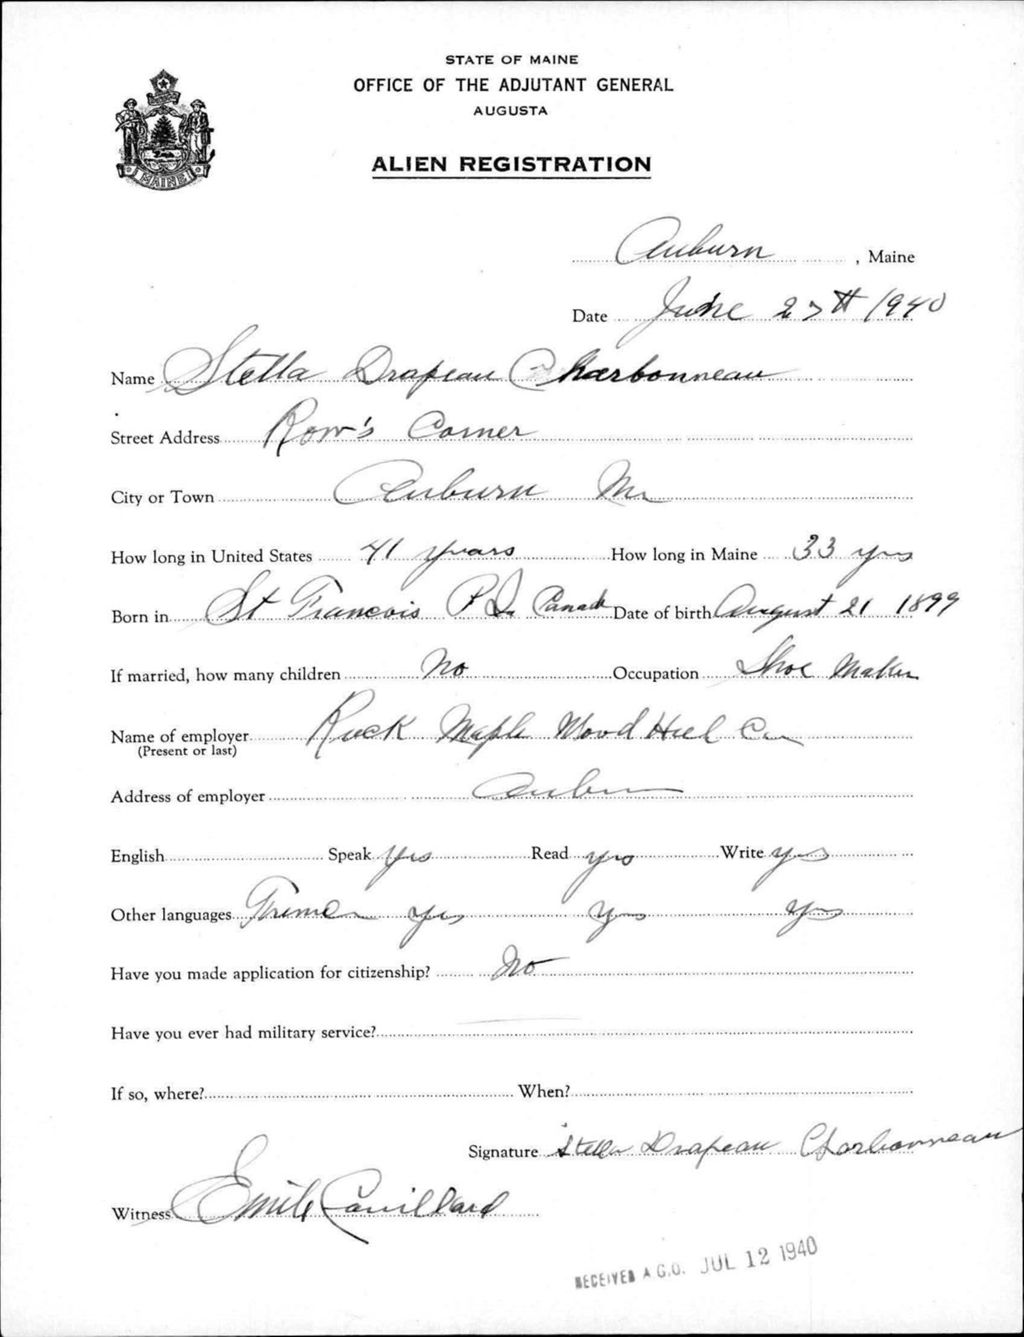 STATE OF MAINE
OFFICE OF THE ADJUTANT GENERAL
AUGUSTA
ALIEN REGISTRATION
MAINE
Auburn, Maine
Date June 27th 1940
Name Stella Drapeau Charbonneau
Street Address Row's Corner
City or Town Auburn Me
How long in United States 41 years How long in Maine 33 yrs
Born in St Francois P Q Canada Date of birth August 21 1899
If married, how many children No Occupation Shoe Maker
Name of employer Rock Maple Wood Heel Co
(Present or last)
Address of employer Auburn
English Speak Yes Read yes Write yes
Other languages French yes yes yes
Have you made application for citizenship? No
Have you ever had military service?
If so, where? When?
Signature Stella Drapeau Charbonneau
Witness Emile
RECEIVED A.G.O. JUL 12 1940